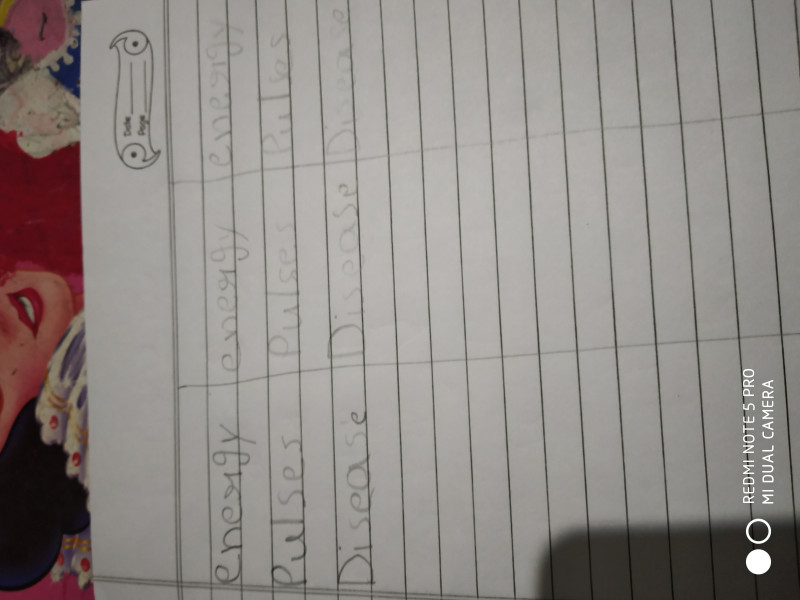 Date
Page
energy energy energy
Pulses Pulses Pulses
Disease Disease Disease
REDMI NOTE 5 PRO
MI DUAL CAMERA